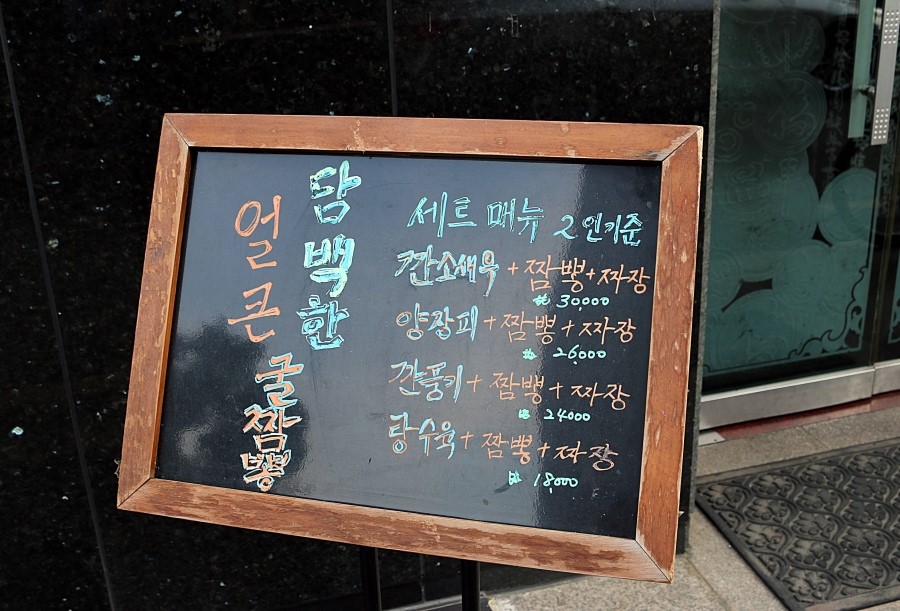 담백한
얼큰 굴짬뽕
세트 메뉴 2인기준
깐소새우 + 짬뽕 + 짜장
₩ 30,000
양장피 + 짬뽕 + 짜장
₩ 26,000
깐풍기 + 짬뽕 + 짜장
₩ 24,000
탕수육 + 짬뽕 + 짜장
₩ 18,000